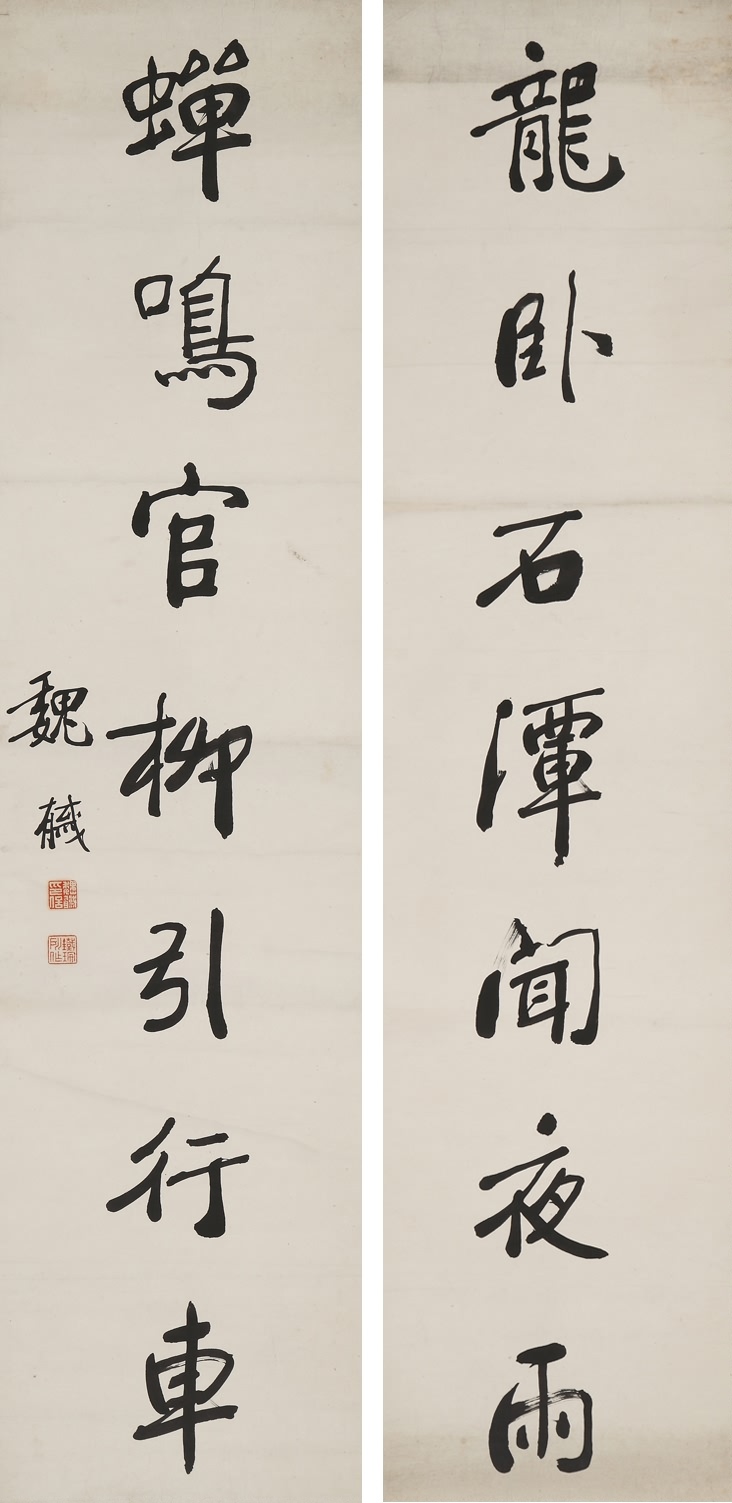 龍卧石潭聞夜雨
蟬鳴官柳引行車
魏戫